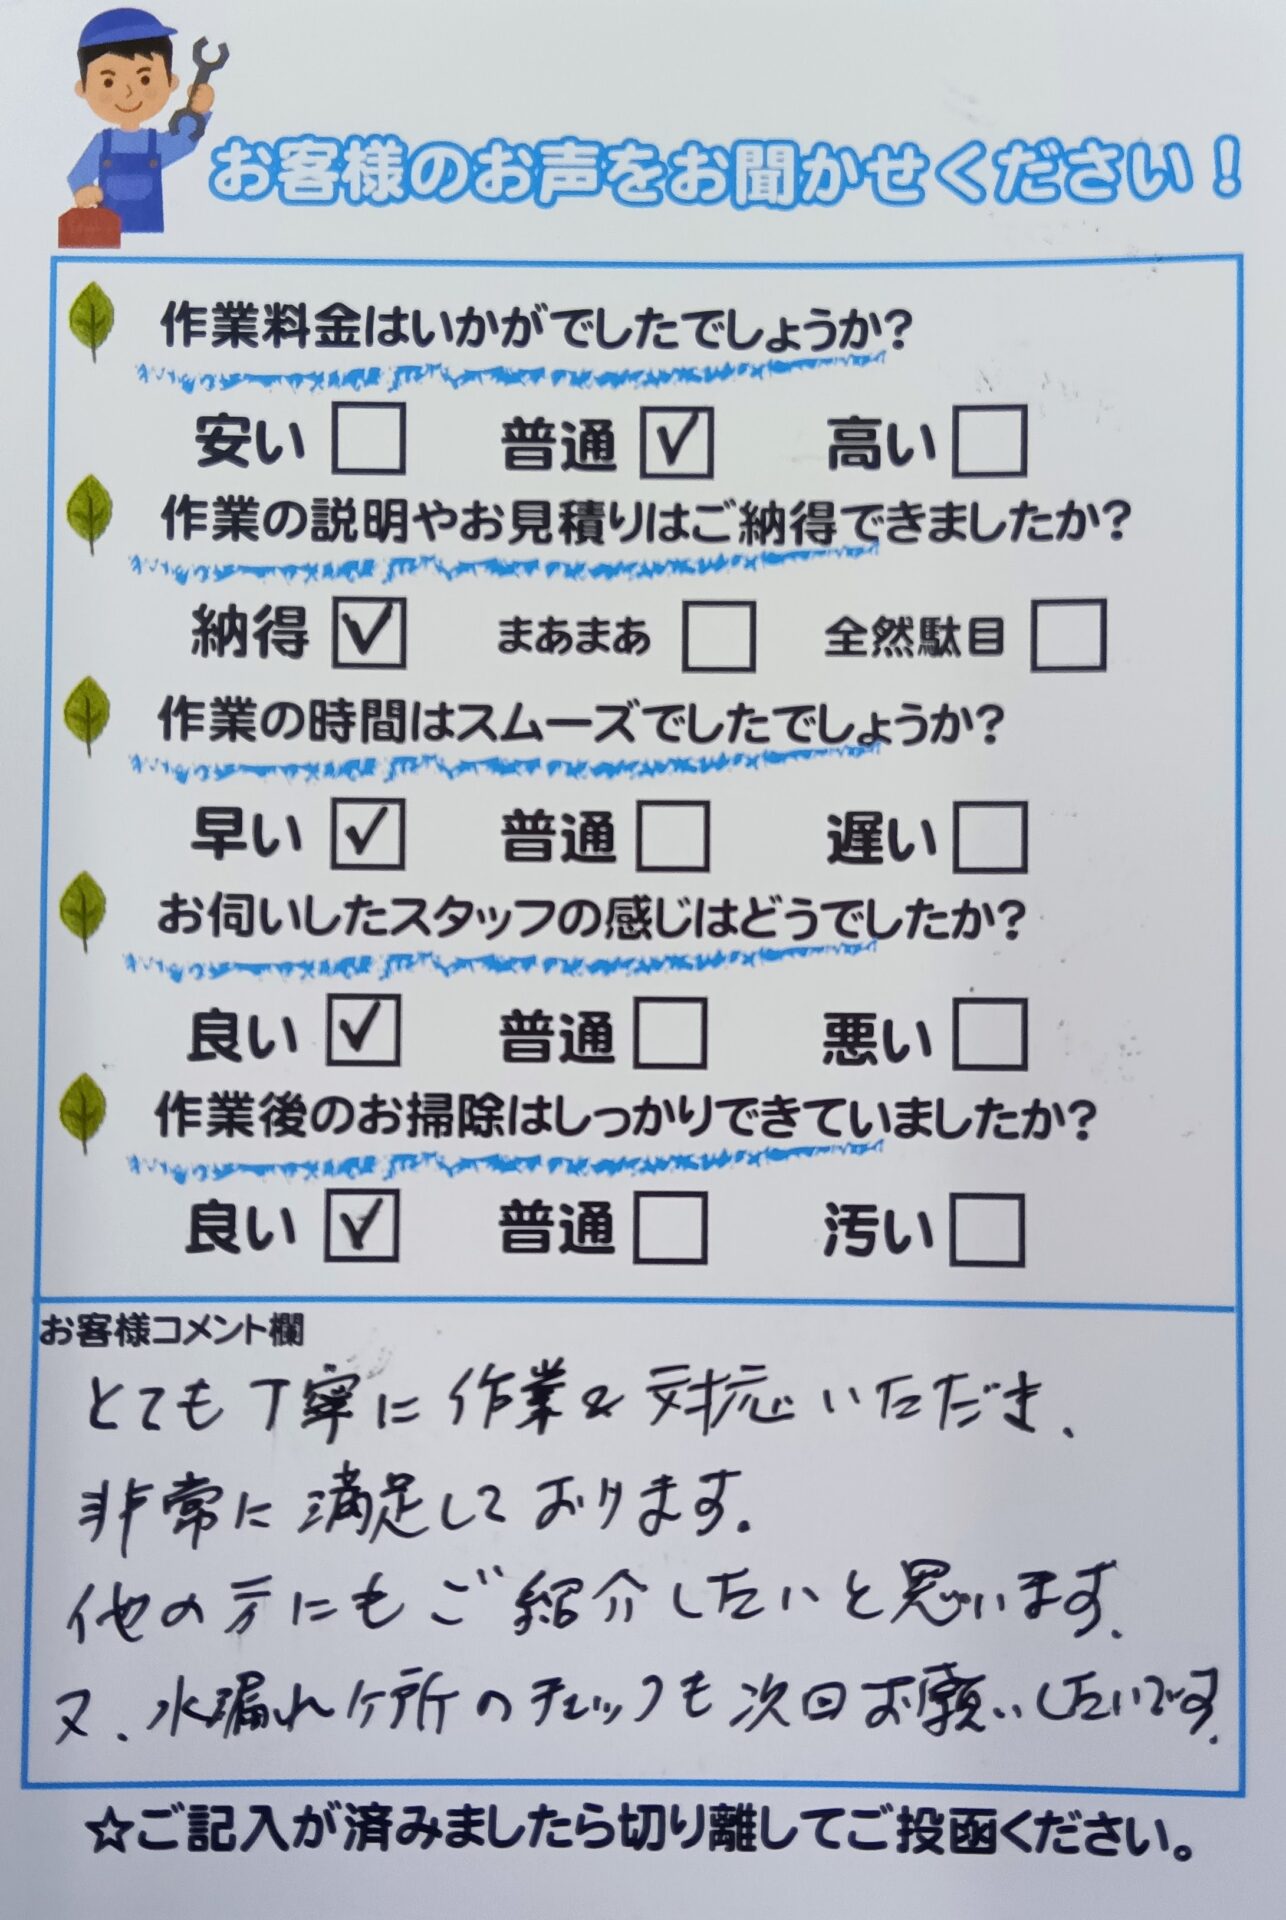 お客様のお声をお聞かせください！
作業料金はいかがでしたでしょうか?
安い □ 普通 ☑ 高い □
作業の説明やお見積りはご納得できましたか?
納得 ☑ まあまあ □ 全然駄目 □
作業の時間はスムーズでしたでしょうか?
早い ☑ 普通 □ 遅い □
お伺いしたスタッフの感じはどうでしたか?
良い ☑ 普通 □ 悪い □
作業後のお掃除はしっかりできていましたか?
良い ☑ 普通 □ 汚い □
お客様コメント欄
とても丁寧に作業&対応いただき、
非常に満足しております。
他の方にもご紹介したいと思います。
又、水漏れケ所のチェックも次回お願いしたいです。
☆ご記入が済みましたら切り離してご投函ください。